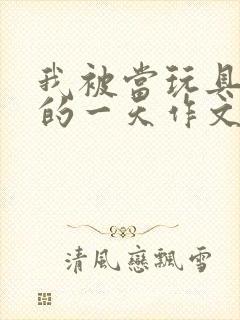 我被當玩具
的一天作文
清風戀飄雪